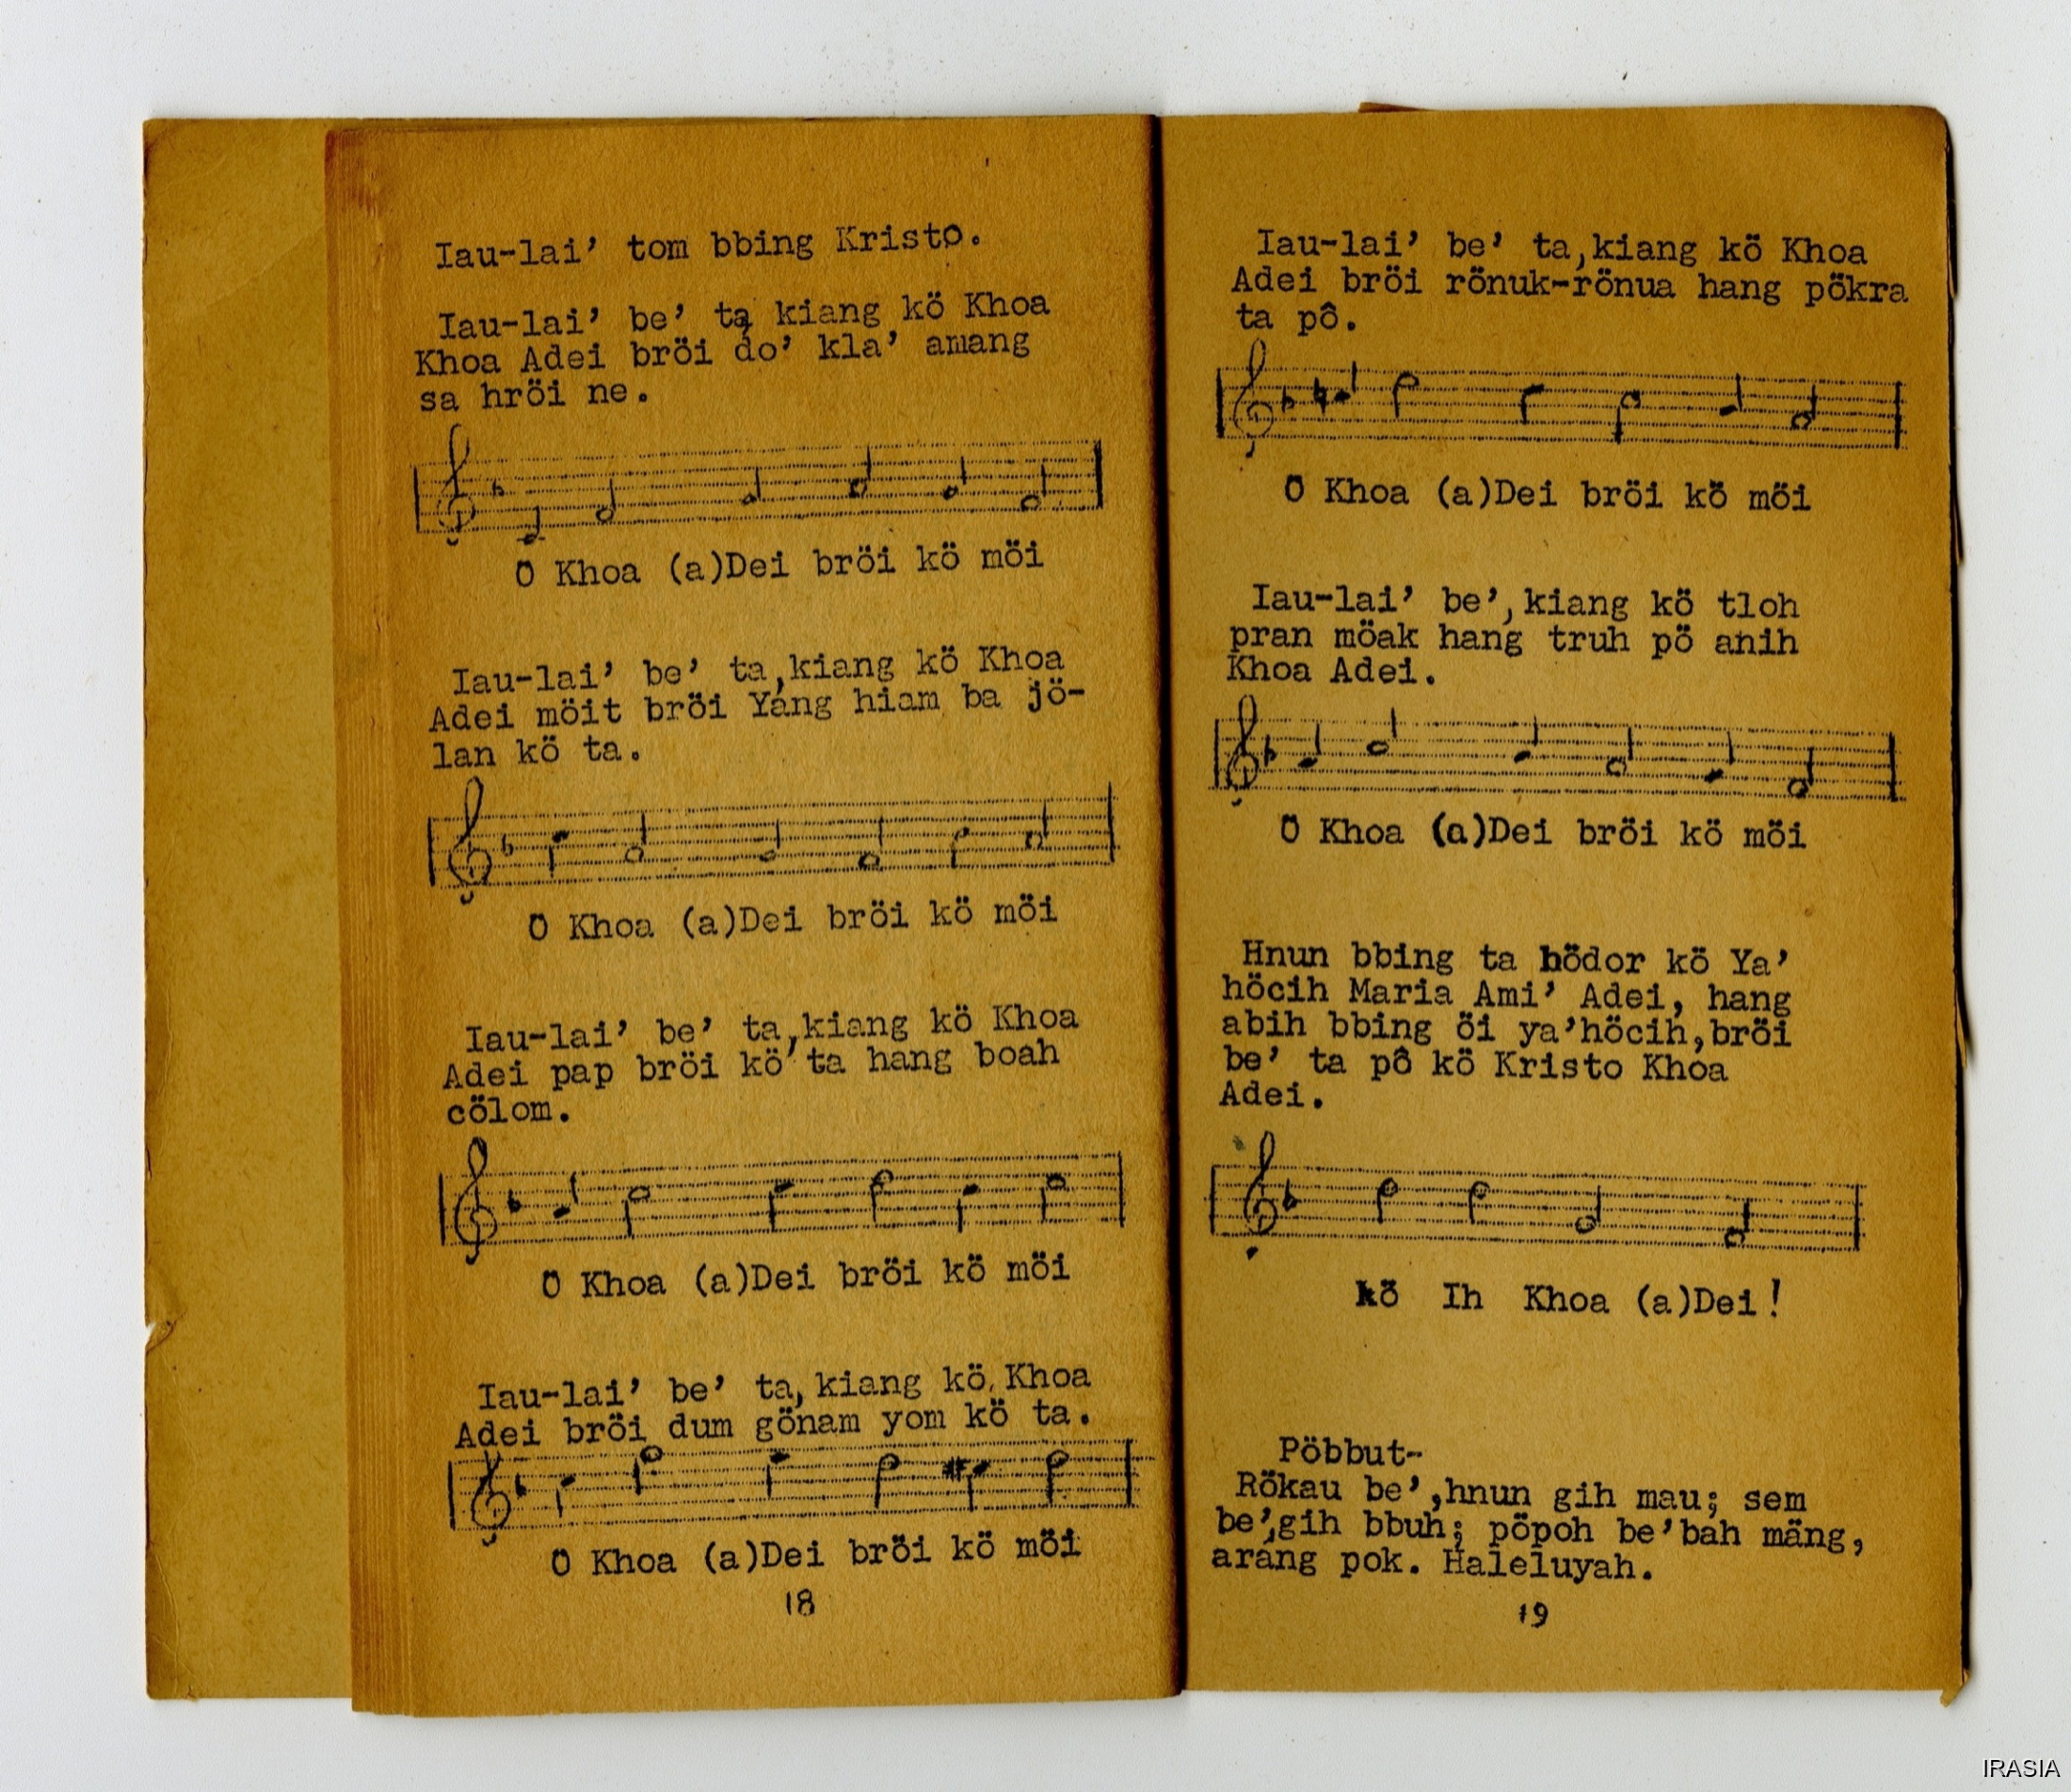 Iau-lai’ tom bbing Kristo.
Iau-lai’ be’ ta, kiang kö Khoa
Khoa Adei bröi do’ kla’ amang
sa hröi ne.
Ö Khoa (a)Dei bröi kö möi
Iau-lai’ be’ ta,kiang kö Khoa
Adei möit bröi Yang hiam ba jö-
lan kö ta.
Ö Khoa (a)Dei bröi kö möi
Iau-lai’ be’ ta,kiang kö Khoa
Adei pap bröi kö ta hang boah
cölom.
Ö Khoa (a)Dei bröi kö möi
Iau-lai’ be’ ta, kiang kö Khoa
Adei bröi dum gönam yom kö ta.
Ö Khoa (a)Dei bröi kö möi
18
Iau-lai’ be’ ta,kiang kö Khoa
Adei bröi rönuk-rönua hang pökra
ta pô.
Ö Khoa (a)Dei bröi kö möi
Iau-lai’ be’,kiang kö tloh
pran möak hang truh pö anih
Khoa Adei.
Ö Khoa (a)Dei bröi kö möi
Hnun bbing ta hödor kö Ya’
höcih Maria Ami’ Adei, hang
abih bbing öi ya’höcih,bröi
be’ ta pô kö Kristo Khoa
Adei.
kö Ih Khoa (a)Dei!
Pöbbut-
Rökau be’,hnun gih mau; sem
be’,gih bbuh; pöpoh be’bah mäng,
arang pok. Haleluyah.
19
IRASIA